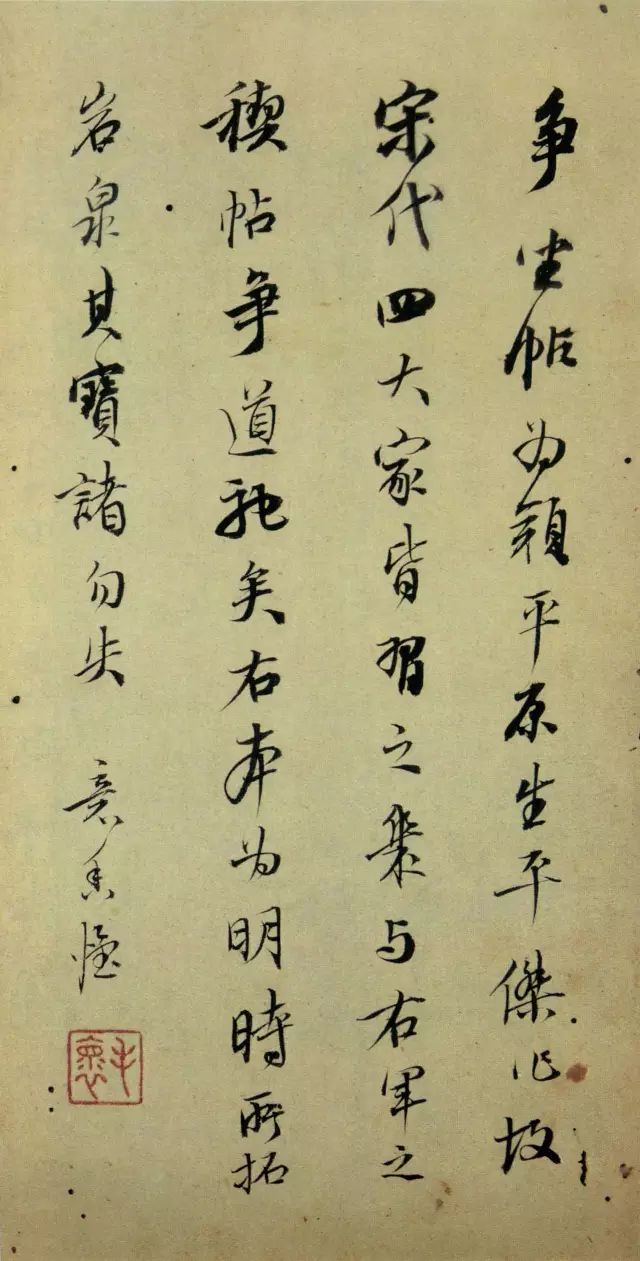 争坐帖为顏平原生平傑作故
宋代四大家皆習之幾与右軍之
禊帖争道馳矣右本为明時所拓
岩泉其寶諸勿失